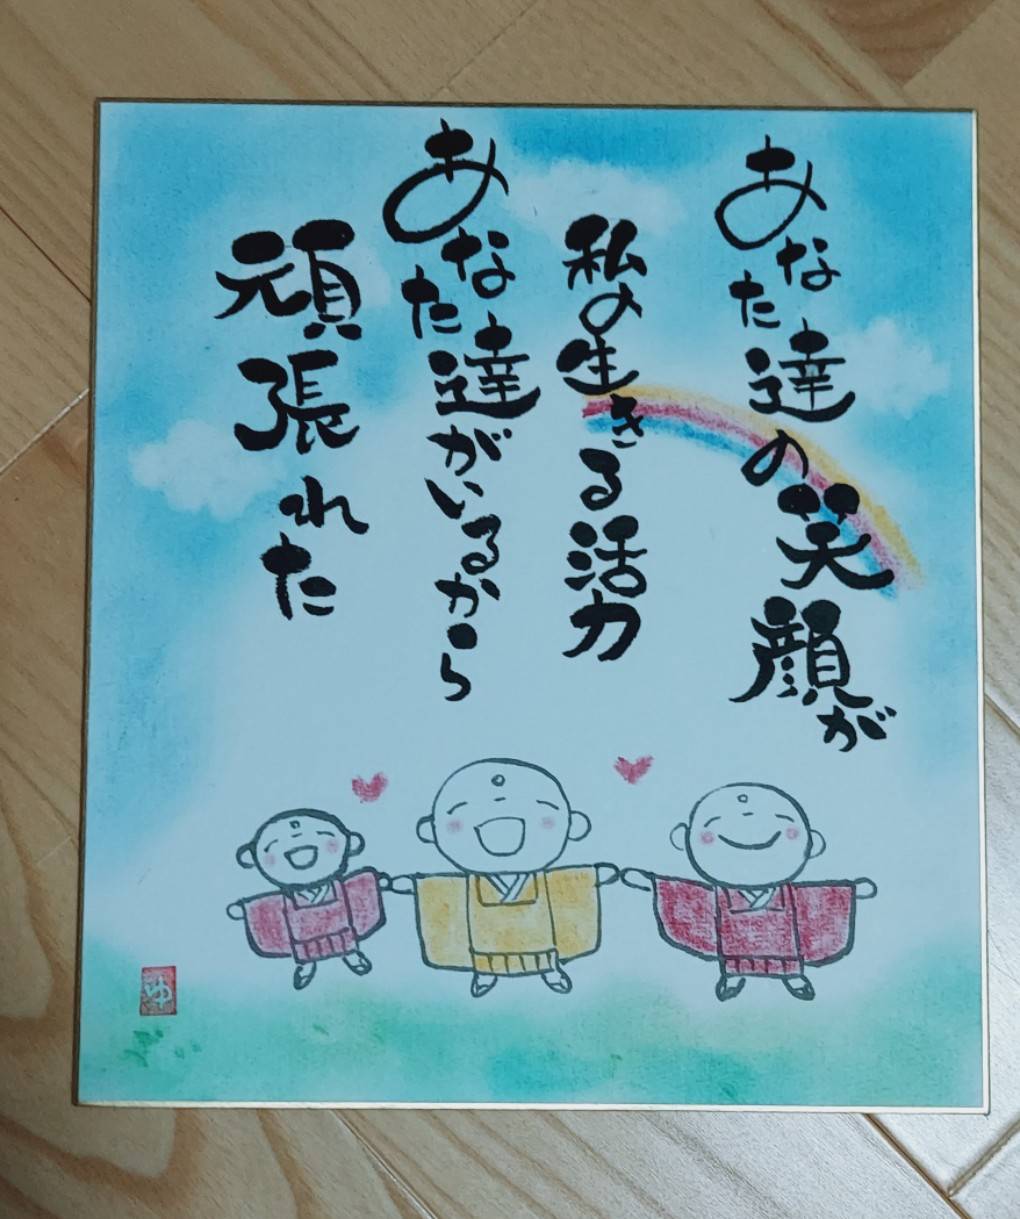 あなた達の笑顔が
私の生きる活力
あなた達がいるから
頑張れた
ゆ